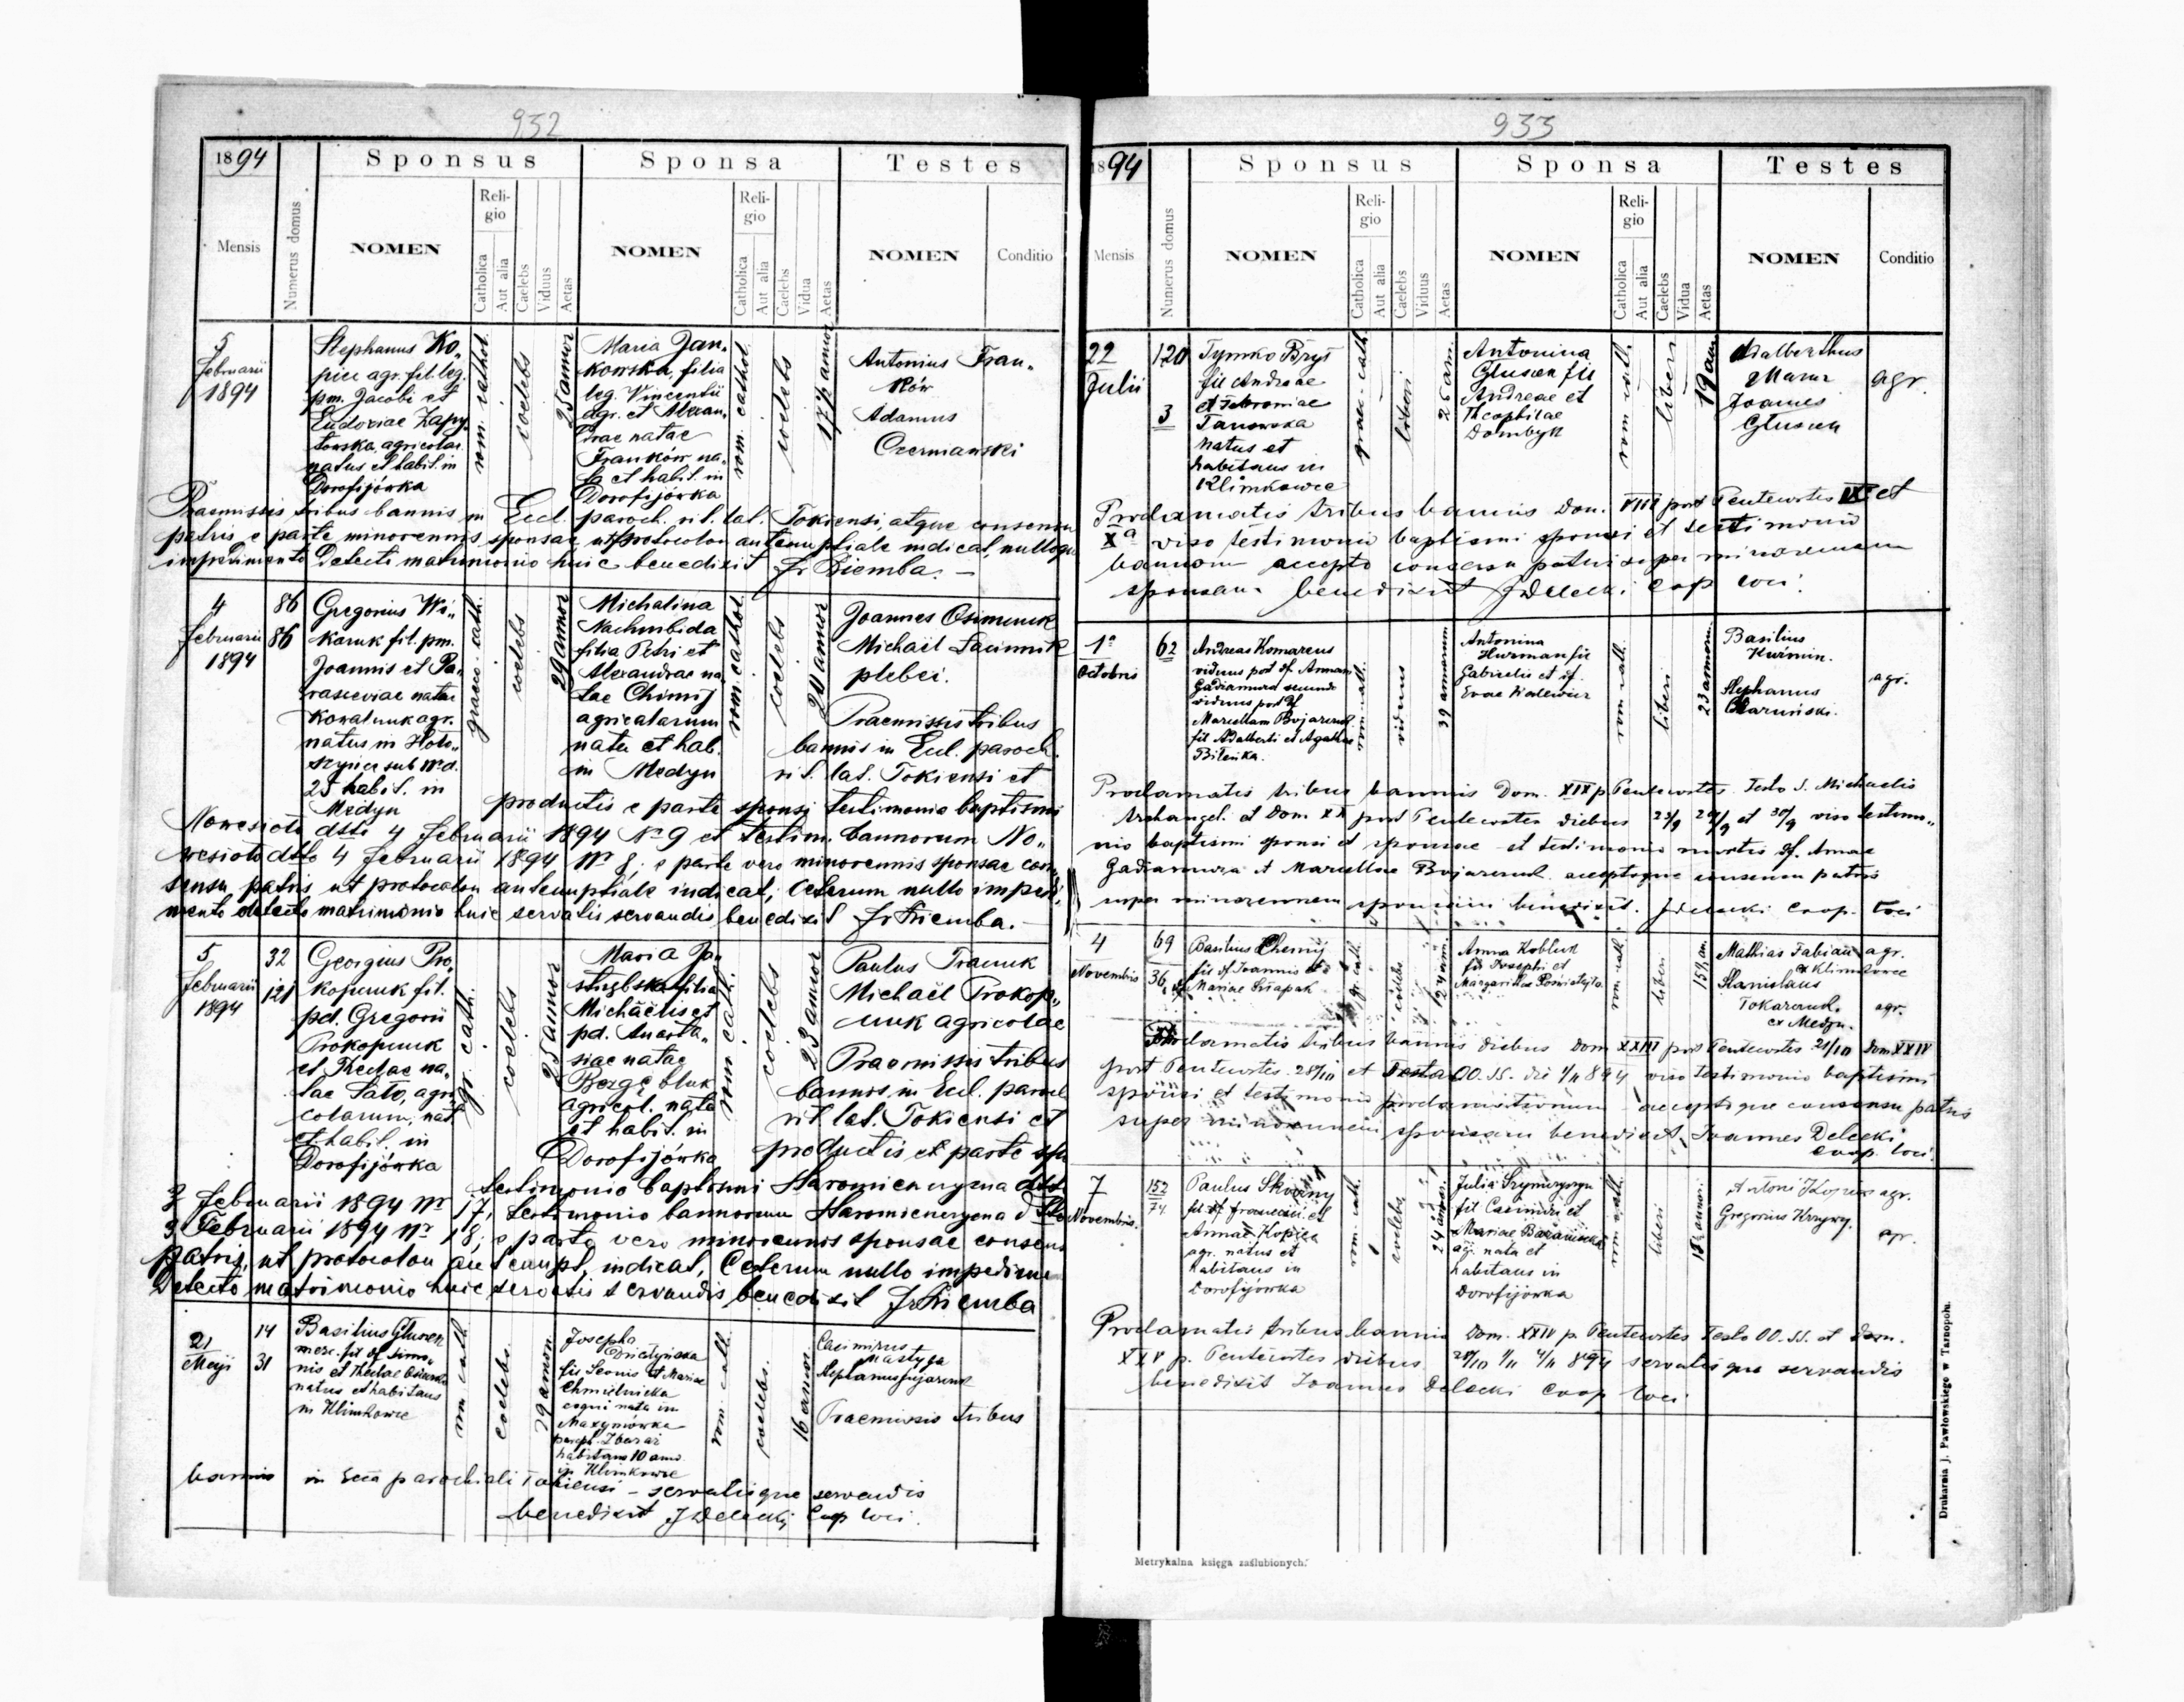 932
1894
Sponsus
Sponsa
Testes
Mensis
Numerus domus
NOMEN
Religio
Catholica
Aut alia
Caelebs
Viduus
Aetas
NOMEN
Religio
Catholica
Aut alia
Caelebs
Vidua
Aetas
NOMEN
Conditio
5
Februarii
1894
Stephanus Ko„
piec agr. fil. leg.
pm. Jacobi et
Eudoxiae Zapy„
towska, agricolar.
natus et habit. in
Dorofijówka
rom. cathol.
coelebs
25 annor
Maria Jan„
kowska, filia
leg. Vincentii
agr. et Alexan„
drae natae
Franków na„
ta et habit. in
Dorofijówka
rom. cathol.
coelebs
17½ annor
Antonius Fran„
ków
Adamus
Czerniański
Praemissis tribus bannis in Eccl. paroch. rit. lat. Tokiensi, atque consensu
patris e parte minorennis sponsae, ut protocolon antenuptiale indicat, nulloque
impedimento detecto matrimonio huic benedixit Fr Ziemba. –
4
Februarii
1894
86
86
Gregorius Wo„
karuk fil. pm.
Joannis et Pa„
rasceviae natae
Kowalruk agr.
natus in Hoło„
szyńce sub Nr d.
25 habit. in
Medyn
graeco. cath.
coelebs
29 annor
Michalina
Nachorbida
filia Petri et
Alexandrae na„
tae Chimij
agricolarum
nata et hab.
in Medyn
rom. cathol.
coelebs
20 annor
Joannes
Michaël
plebei.
Praemissis tribus
bannis in Eccl. paroch.
rit. lat. Tokiensi et
productis e parte sponsi testimonio baptismi
Nowesioło ddto 4 Februarii 1894 Nr 9 et testim. bannorum No„
wesioło ddto 4 Februarii 1894 Nr 8; e parte vero minorennis sponsae con„
sensu patris, ut protocolon antenuptiale indicat; Ceterum nullo impedi„
mento detecto matrimonio huic servatis servandis benedixit Fr Ziemba. –
5
Februarii
1894
32
121
Georgius Pro„
kopczuk fil.
pd. Gregorii
Prokopczuk
et Theclae na„
tae Sato, agri„
colarum, nat.
et habit. in
Dorofijówka
gr. cath.
coelebs
25 annor
Maria
filia
Michaëlis et
pd. Anasta„
siae natae
agricol. nata
et habit. in
Dorofijówka
rom. cath.
coelebs
23 annor
Paulus
Michaël Prokop„
czuk agricolae
Praemissis tribus
bannis in Eccl. paroch
rit lat. Tokiensi et
productis et parte spon
testimonio baptismi ddto
3 Februarii 1894 Nr 17; testimonio bannorum ddto
3 Februarii 1894 Nr 18; e parte vero minorennis sponsae consens
patris, ut protocolon antenupt. indicat, Ceterum nullo impedime
detecto matrimonio huic servatis servandis benedixit Fr Ziemba
21
Maji
14
31
Basilius Głuszek
merc. fil df. Simo„
nis et Theclae
natus et habitans
in Klimkowce
rom cath
coelebs
29 annor
Josepha
fil Leonis et Mariae
Chmielnicka
nata in
Maxymówka
paroch. Zbaraż
habitans 10 ann.
in Klimkowce
rom. cath
coelebs.
16 annor
Casimirus
Mastyga
Stephanus
Praemissis tribus
bannis in Eccla parochiali Tokiensi – servatisque servandis
benedixit J Delecki Coop loci.
933
1894
Sponsus
Sponsa
Testes
Mensis
Numerus domus
NOMEN
Religio
Catholica
Aut alia
Caelebs
Viduus
Aetas
NOMEN
Religio
Catholica
Aut alia
Caelebs
Vidua
Aetas
NOMEN
Conditio
22
Julii
120
3
Tymko Bryś
fil Andreae
et Febroniae
Tanowska
natus et
habitans in
Klimkowce
graec. cath.
liberi
26 ann.
Antonina
Głuszek fil
Andreae et
Theophilae
Dombyk
rom cath.
liberi
19 ann
Adalberthus
Mazur
Joannes
Głuszek
agr.
Proclamatis tribus bannis Dom. VIII post Pentecostes IX et
Xa viso testimonio baptismi sponsi et testimonio
bannorum accepto consensu patris super minorennem
sponsam benedixit J Delecki Coop loci.
1a
Octobris
62
Andreas Komarcus
viduus post df. Annam
Gadiamura secundo
viduus post df
Marcellam Bojarczuk
fil Adalberti et Agathae
Bileńka.
rom cath.
viduus
39 annorum
Antonina
Huzman fil
Gabrielis et df.
Evae
rom cath.
liberi
23 annorum
Basilius
Kuźmin.
Stephanus
agr.
Proclamatis tribus bannis Dom. XIX p. Pentecostes. Festo S. Michaelis
Archangeli et Dom XX post Pentecostes diebus 23/9 29/9 et 30/9 viso testimo„
nio baptismi sponsi et sponsae et testimonio mortis df. Annae
Gadiamura et Marcellae Bojarczuk acceptoque consensu patris
super minorennem sponsam benedixit. J Delecki Coop. loci
4
Novembris
69
36
Basilius Chemij
fil df Joannis et
Mariae
gr. cath.
coelebs
24 ann
Anna Kobluk
fil Josephi et
Margarithae
rom cath
liberi
15½ an.
Mathias Fabian agr.
ex Klimkowce
Stanislaus
Tokarczuk
ex Medyn.
agr.
Proclamatis tribus bannis diebus Dom XXIII post Pentecostes 21/10 Dom XXIV
post Pentecostes 28/10 et Festo OO. SS. die 1/11 894 viso testimonio baptismi
sponsi et testimonio proclamationum acceptoque consensu patris
super minorennem sponsam benedixit Joannes Delecki
Coop. loci.
7
Novembris.
152
74
Paulus Skórny
fil df Francisci et
Annae Kopiec
agr. natus et
habitans in
Dorofijówka
rom. cath.
coelebs
24 annor.
Julia
fil Casimiri et
Mariae Baranicka
agr. nata et
habitans in
Dorofijówka
rom cath
liberi
18½ annor.
Antoni Kopiec agr.
Gregorius Krzywy.
agr.
Proclamatis tribus bannis Dom. XXIV p. Pentecostes Festo OO. SS. et Dom.
XXV p. Pentecostes diebus 28/10 1/11 4/11 894 servatisque servandis
benedixit Joannes Delecki Coop loci
Metrykalna księga zaślubionych.
Drukarnia J. Pawłowskiego w Tarnopolu.